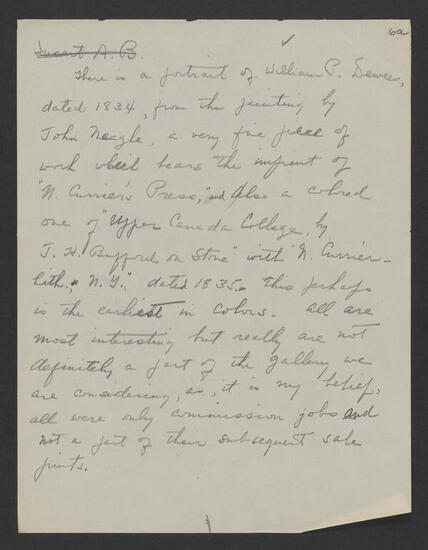 6a
Insert A. B.
There is a portrait of William P. Dewees,
dated 1834, from the painting by
John Neagle, a very fine piece of
work which bears the imprint of
"N. Currier's Press," and Also a colored
one of "Upper Canada College, by
J. H. Bufford on Stone" with "N. Currier-
Lith., N. Y.", dated 1835. This perhaps
is the earliest in colors. All are
most interesting but really are not
definitely a part of the gallery we
are considering, as, it is my belief,
all were only commission jobs and
not a part of their subsequent sale
prints.